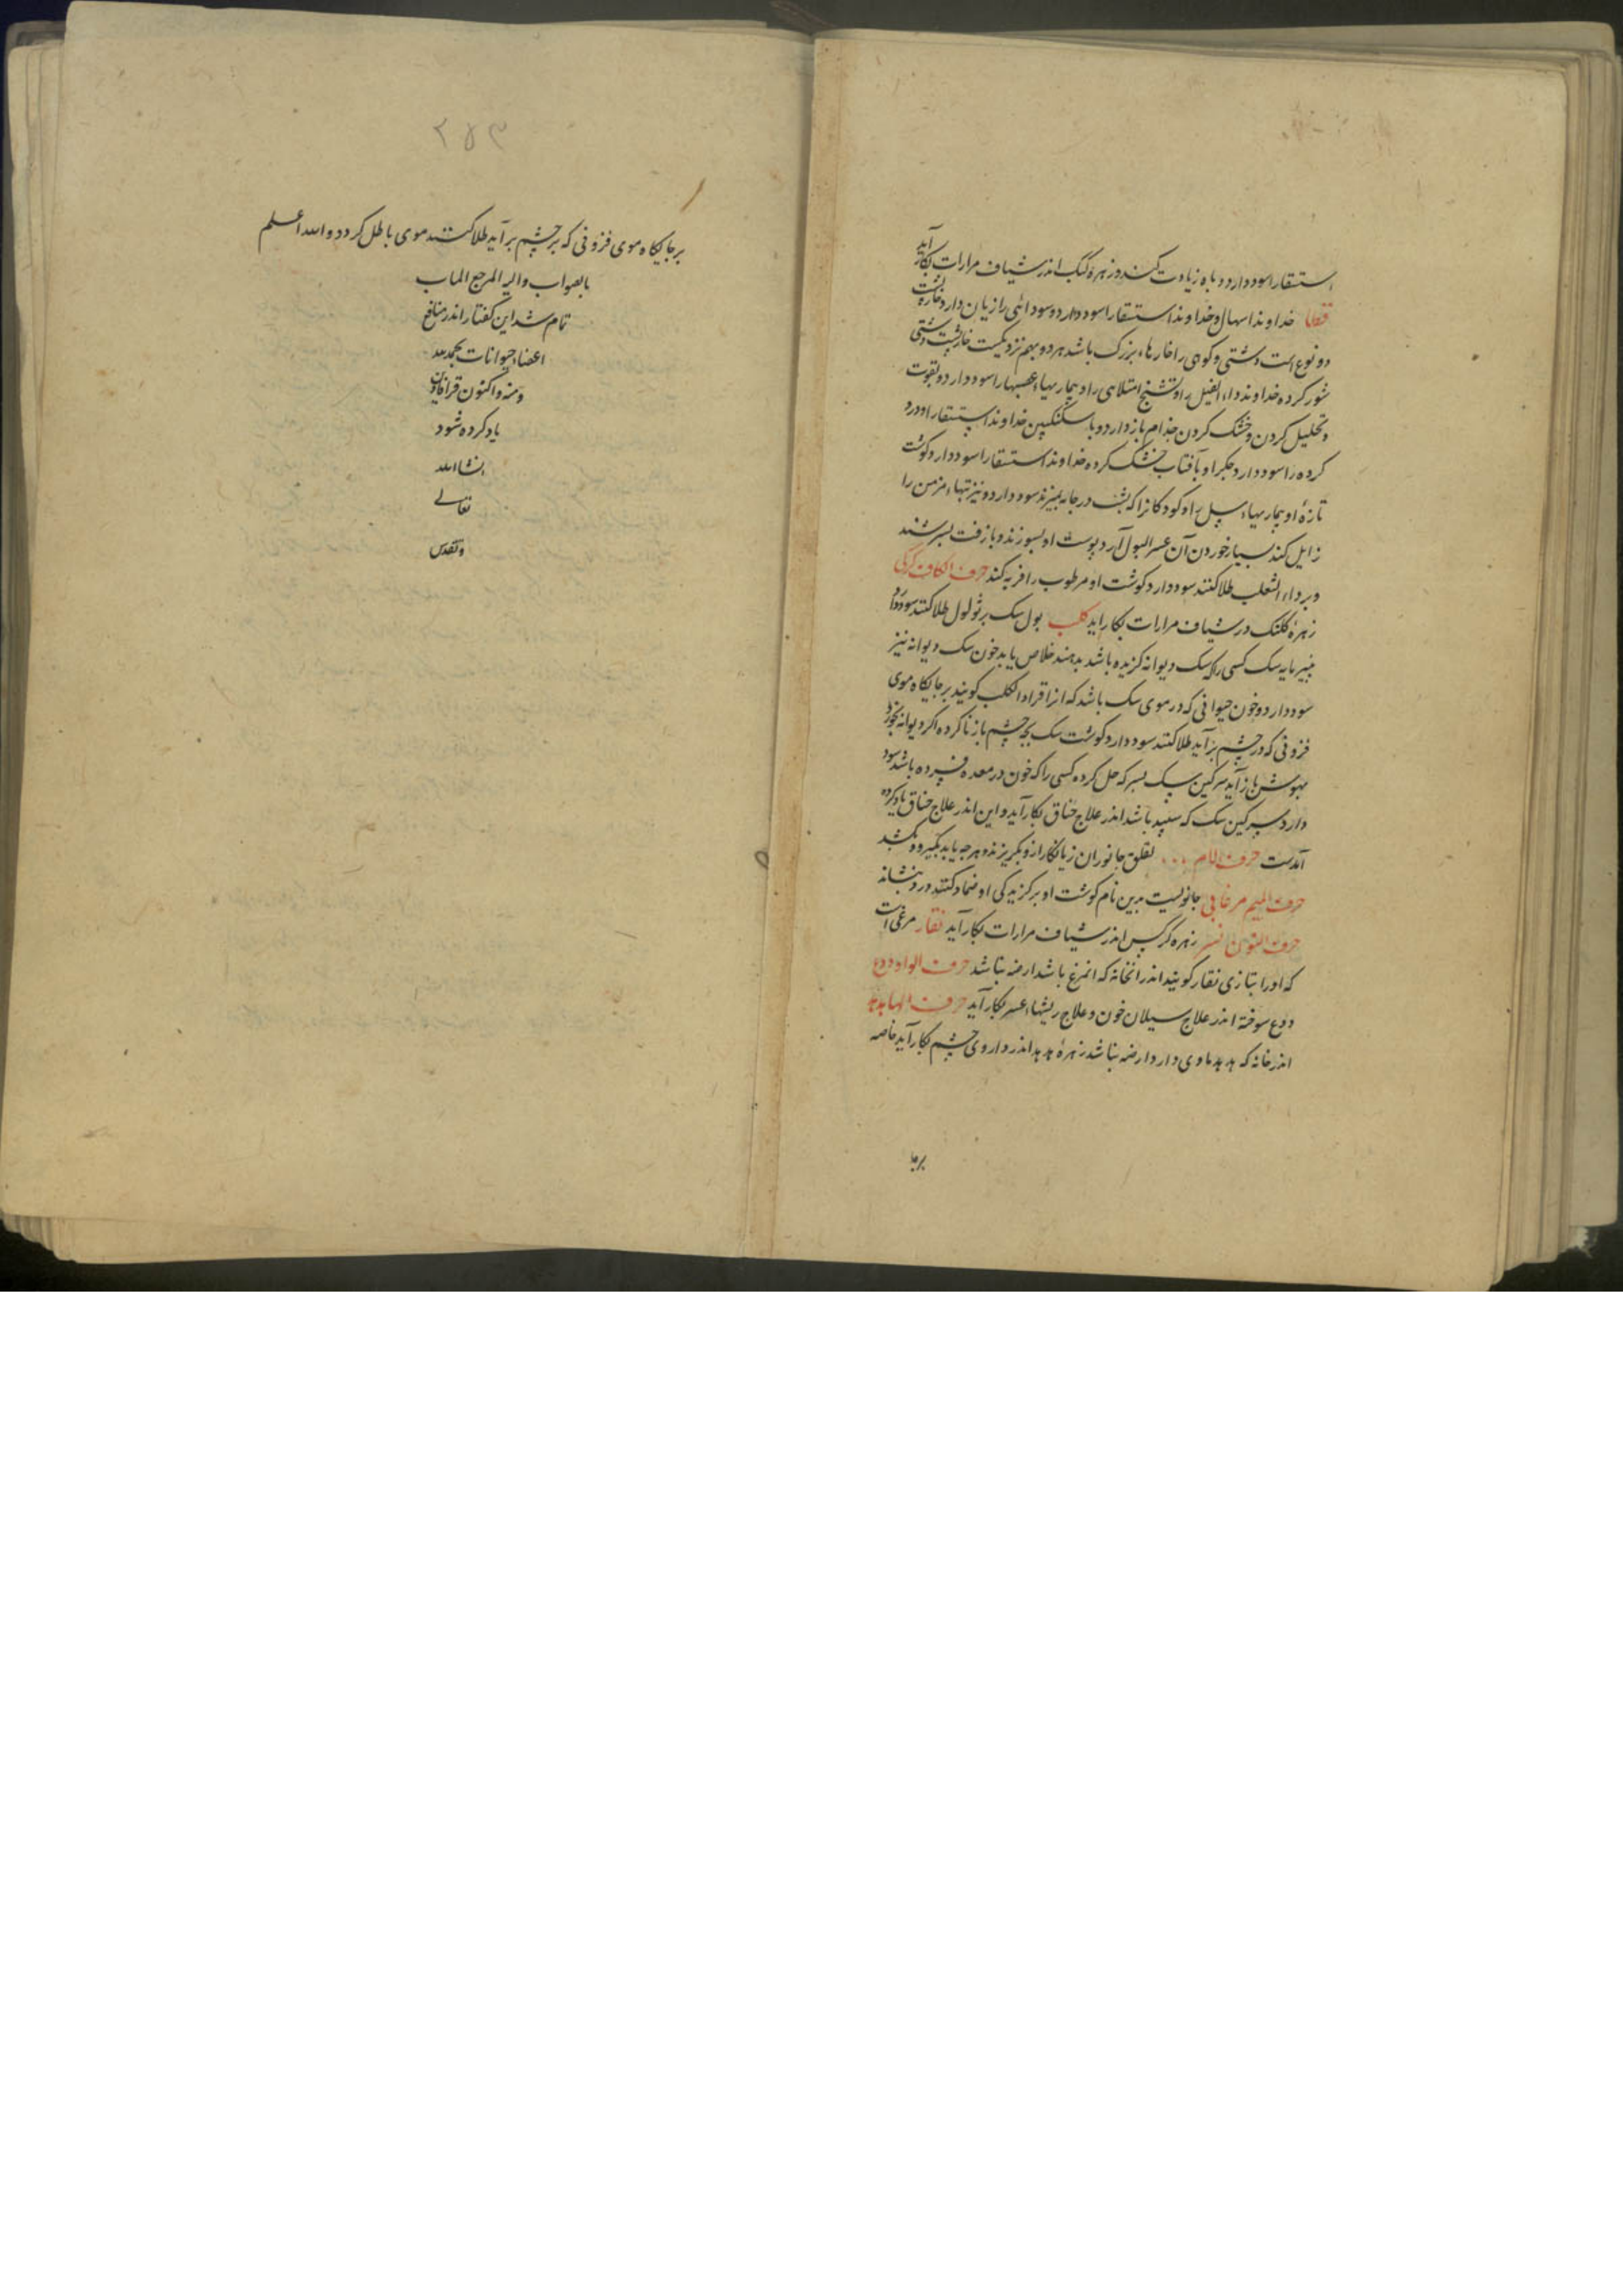 استسقا را سود دارد و باه زیادت کند و زهرهٔ کبک اندر شیاف مرارات بکار آید
قطا خداوند اسهال و خداوند استسقا را سود دارد و سودائی را زیان دارد خارپشت
دو نوع است دشتی و کوهی را خارها بزرک باشد هر دو بهم نزدیکست خارپشت دشتی
شور کرده خداوند داء الفیل را و تشنج امتلائی را و بیماریهاء عصبها را سود دارد و بقوت
و تحلیل کردن و خشک کردن جذام باز دارد و با سکنکبین خداوند استسقا را و درد
کرده را سود دارد و جکر او بآفتاب خشک کرده خداوند استسقا را سود دارد و کوشت
تازهٔ او بیماریهاء سل را و کودکانرا که بشب در جامه بمیزند سود دارد و نیز تبهاء مزمن را
زایل کند بسیار خوردن آن عسر البول آرد پوست او بسوزند و با زفت بسرشند
و بر داء الثعلب طلا کنند سود دارد کوشت او مرطوب را فربه کند حرف الکاف کرکی
زهرهٔ کلنک در شیاف مرارات بکار اید کلب بول سک بر ثولول طلا کنند سود دارد
پنیر مایه سک کسی را که سک دیوانه کزیده باشد بدهند خلاص یابد خون سک دیوانه نیز
سود دارد و خون حیوانی که در موی سک باشد که انرا قراد الکلب کویند بر جایکاه موی
فزونی که در چشم بر آید طلا کنند سود دارد کوشت سک بچه چشم باز ناکرده اکر دیوانه بخورد
بهوش باز آید سرکین سک بسرکه حل کرده کسی را که خون در معده فسرده باشد سود
دارد سرکین سک که سپید باشد اندر علاج خناق بکار آید و این اندر علاج خناق یاد کرده
آمدست حرف اللام لقلق جانوران زیانکار ازو بکریزند و هر جه یابد بکیرد و بکشد
حرف المیم مرغابی جانوریست بدین نام کوشت او بر کزیدکی او ضماد کنند درد بنشاند
حرف النون نسر زهره کرکس اندر شیاف مرارات بکار آید نقار مرغی است
که اورا بتازی نقار کویند اندر انخانه که انمرغ باشد ارضه نباشد حرف الواو ودع
ودع سوخته اندر علاج سیلان خون و علاج ریشهاء عسر بکار آید حرف الها هدهد
اندر خانه که هدهد ماوی دارد ارضه نباشد زهرهٔ هدهد اندر داروی چشم بکار آید خاصه
برجا
۲۵۳
بر جایکاه موی فزونی که بر چشم بر آید طلا کنند موی باطل کردد و الله اعلم
بالصواب والیه المرجع الماب
تمام شد این کفتار اندر منافع
اعضاء حیوانات بحمد الله
ومنه و اکنون قرافادین
یاد کرده شود
انشاالله
تعالے
وتقدس